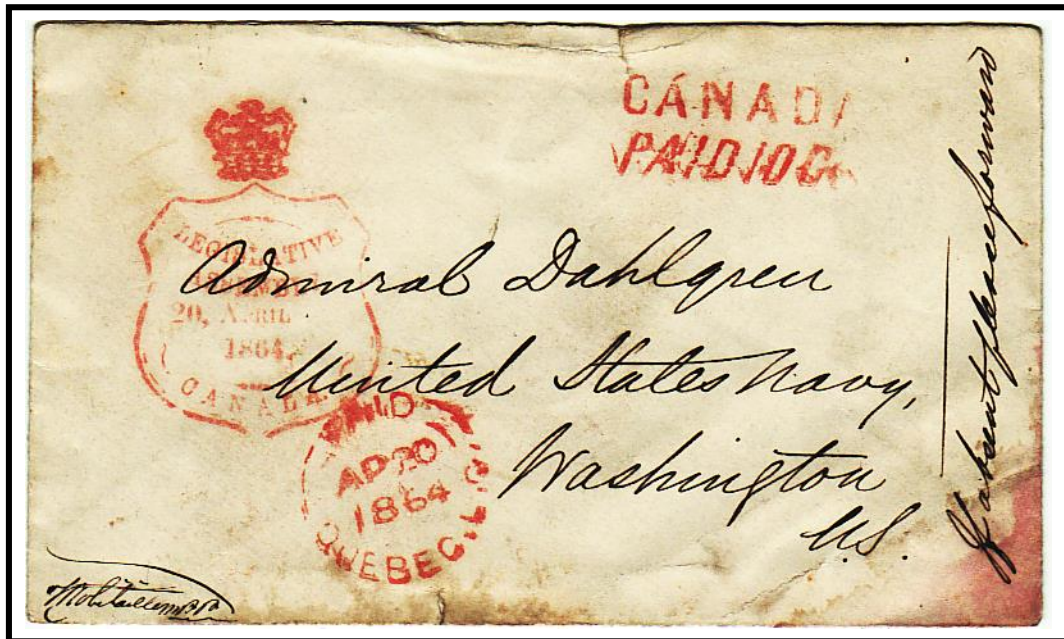 CANADA
PAID 10C
LEGISLATIVE
ASSEMBLY
20, APRIL
1864.
CANADA
Admiral Dahlgren
United States Navy,
Washington
U.S.
PAID
AP 20
1864
QUEBEC, L.C.
If absent please forward